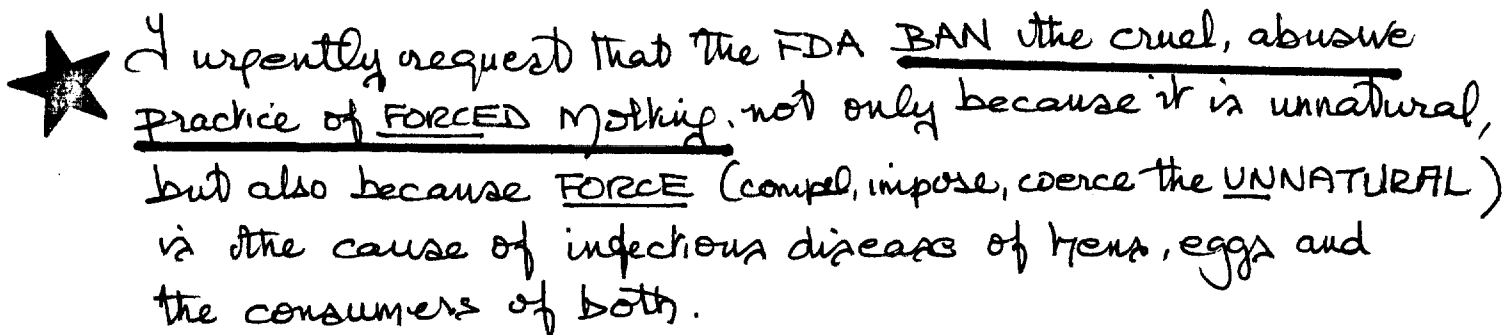 I urgently request that the FDA BAN the cruel, abusive
practice of FORCED Molting, not only because it is unnatural,
but also because FORCE (compel, impose, coerce the UNNATURAL)
is the cause of infectious diseases of hens, eggs and
the consumers of both.